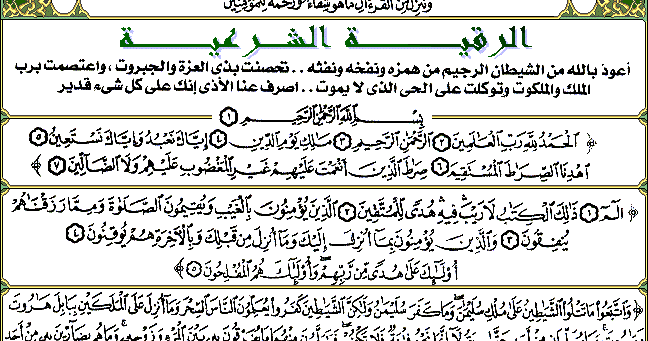 وننزل من القرءان ما هو شفاء ورحمة للمؤمنين
الرقيـــة الشرعيـــة
أعوذ بالله من الشيطان الرجيم من همزه ونفخه ونفثه . . تحصنت بذى العزة والجبروت ، واعتصمت برب
الملك والملكوت وتوكلت على الحى الذى لا يموت . . اصرف عنا الأذى إنك على كل شىء قدير
بِسْمِ اللَّهِ الرَّحْمَٰنِ الرَّحِيمِ ١
﴿ الْحَمْدُ لِلَّهِ رَبِّ الْعَالَمِينَ ٢ الرَّحْمَٰنِ الرَّحِيمِ ٣ مَالِكِ يَوْمِ الدِّينِ ٤ إِيَّاكَ نَعْبُدُ وَإِيَّاكَ نَسْتَعِينُ ٥
اهْدِنَا الصِّرَاطَ الْمُسْتَقِيمَ ٦ صِرَاطَ الَّذِينَ أَنْعَمْتَ عَلَيْهِمْ غَيْرِ الْمَغْضُوبِ عَلَيْهِمْ وَلَا الضَّالِّينَ ٧ ﴾
﴿ الم ١ ذَٰلِكَ الْكِتَابُ لَا رَيْبَ فِيهِ هُدًى لِلْمُتَّقِينَ ٢ الَّذِينَ يُؤْمِنُونَ بِالْغَيْبِ وَيُقِيمُونَ الصَّلَوٰةَ وَمِمَّا رَزَقْنَاهُمْ
يُنْفِقُونَ ٣ وَالَّذِينَ يُؤْمِنُونَ بِمَا أُنْزِلَ إِلَيْكَ وَمَا أُنْزِلَ مِنْ قَبْلِكَ وَبِالْآخِرَةِ هُمْ يُوقِنُونَ ٤
أُولَٰئِكَ عَلَىٰ هُدًى مِنْ رَبِّهِمْ وَأُولَٰئِكَ هُمُ الْمُفْلِحُونَ ٥ ﴾
﴿ وَاتَّبَعُوا مَا تَتْلُوا الشَّيَاطِينُ عَلَىٰ مُلْكِ سُلَيْمَانَ وَمَا كَفَرَ سُلَيْمَانُ وَلَٰكِنَّ الشَّيَاطِينَ كَفَرُوا يُعَلِّمُونَ النَّاسَ السِّحْرَ وَمَا أُنْزِلَ عَلَى الْمَلَكَيْنِ بِبَابِلَ هَارُوتَ